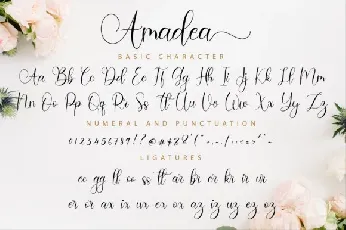 Amadea
BASIC CHARACTER
Aa Bb Cc Dd Ee Ff Gg Hh Ii Jj Kk Ll Mm
Nn Oo Pp Qq Rr Ss Tt Uu Vv Ww Xx Yy Zz
NUMERAL AND PUNCTUATION
0123456789!?@#$&
LIGATURES
ee gg ll oo ss tt ar br er kr ir ur
er or ax ix ux ex ox az iz uz ez oz